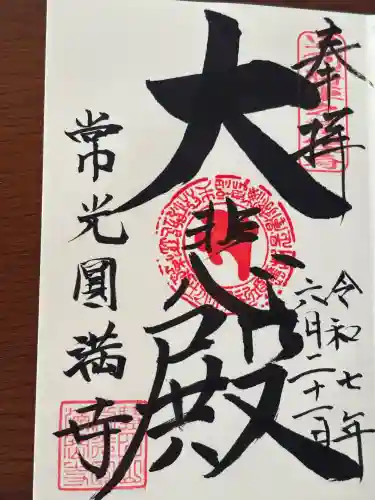 奉拝
令和七年
六月二十一日
大悲殿
常光圓満寺